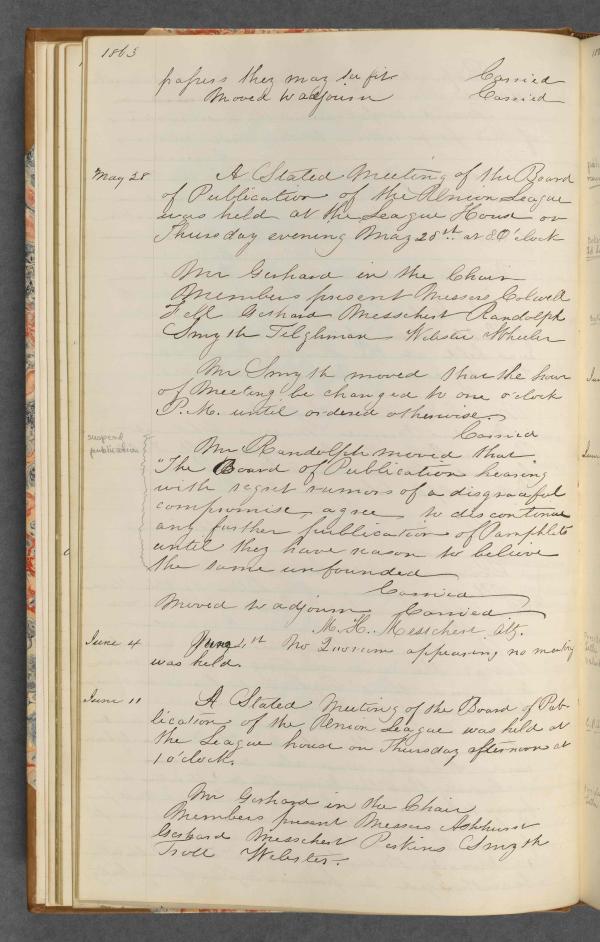 1863
papers they may see fit Carried
Moved to adjourn Carried
May 28 A Stated Meeting of the Board
of Publication of the Union League
was held at the League House on
Thursday evening May 28th at 8 O'clock
Mr Gerhard in the Chair
Members present Messrs Colwell
Fell Gerhard Messchert Randolph
Smyth Tilghman Webster Wheeler
Mr Smyth moved that the hour
of Meeting be changed to one o'clock
P.M. until ordered otherwise.
Carried
suspend
publication
Mr Randolph moved that
"The Board of Publication hearing
with regret rumors of a disgraceful
compromise agree to discontinue
any further publication of Pamphlets
until they have reason to believe
the same unfounded
Carried
Moved to adjourn Carried
M. H. Messchert
June 4 June 4th No Quorum appearing no meeting
was held.
June 11 A Stated Meeting of the Board of Pub-
lication of the Union League was held at
the League house on Thursday afternoon at
1 o'clock.
Mr Gerhard in the Chair
Members present Messrs Ashhurst
Gerhard Messchert Perkins Smyth
Trott Webster.